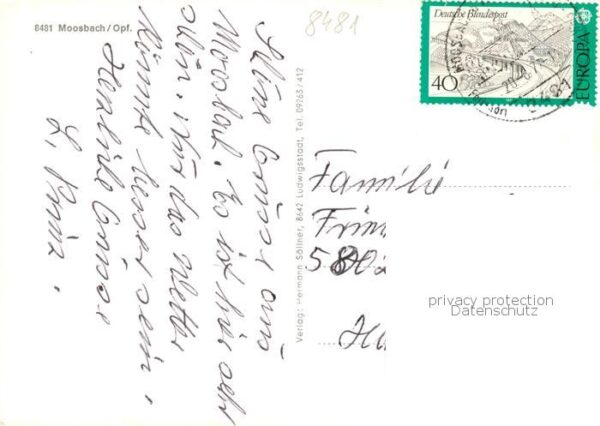 8481 Moosbach/Opf.
8481
Deutsche Bundespost
40
EUROPA
Liebe Grüsse aus
Moosbach. Es ist hier sehr
schön. Nur das Wetter
könnte besser sein.
Herzliche Grüsse
Verlag: Hermann Söllner, 8642 Ludwigsstadt, Tel. 09263/412
Familie
580
privacy protection
Datenschutz